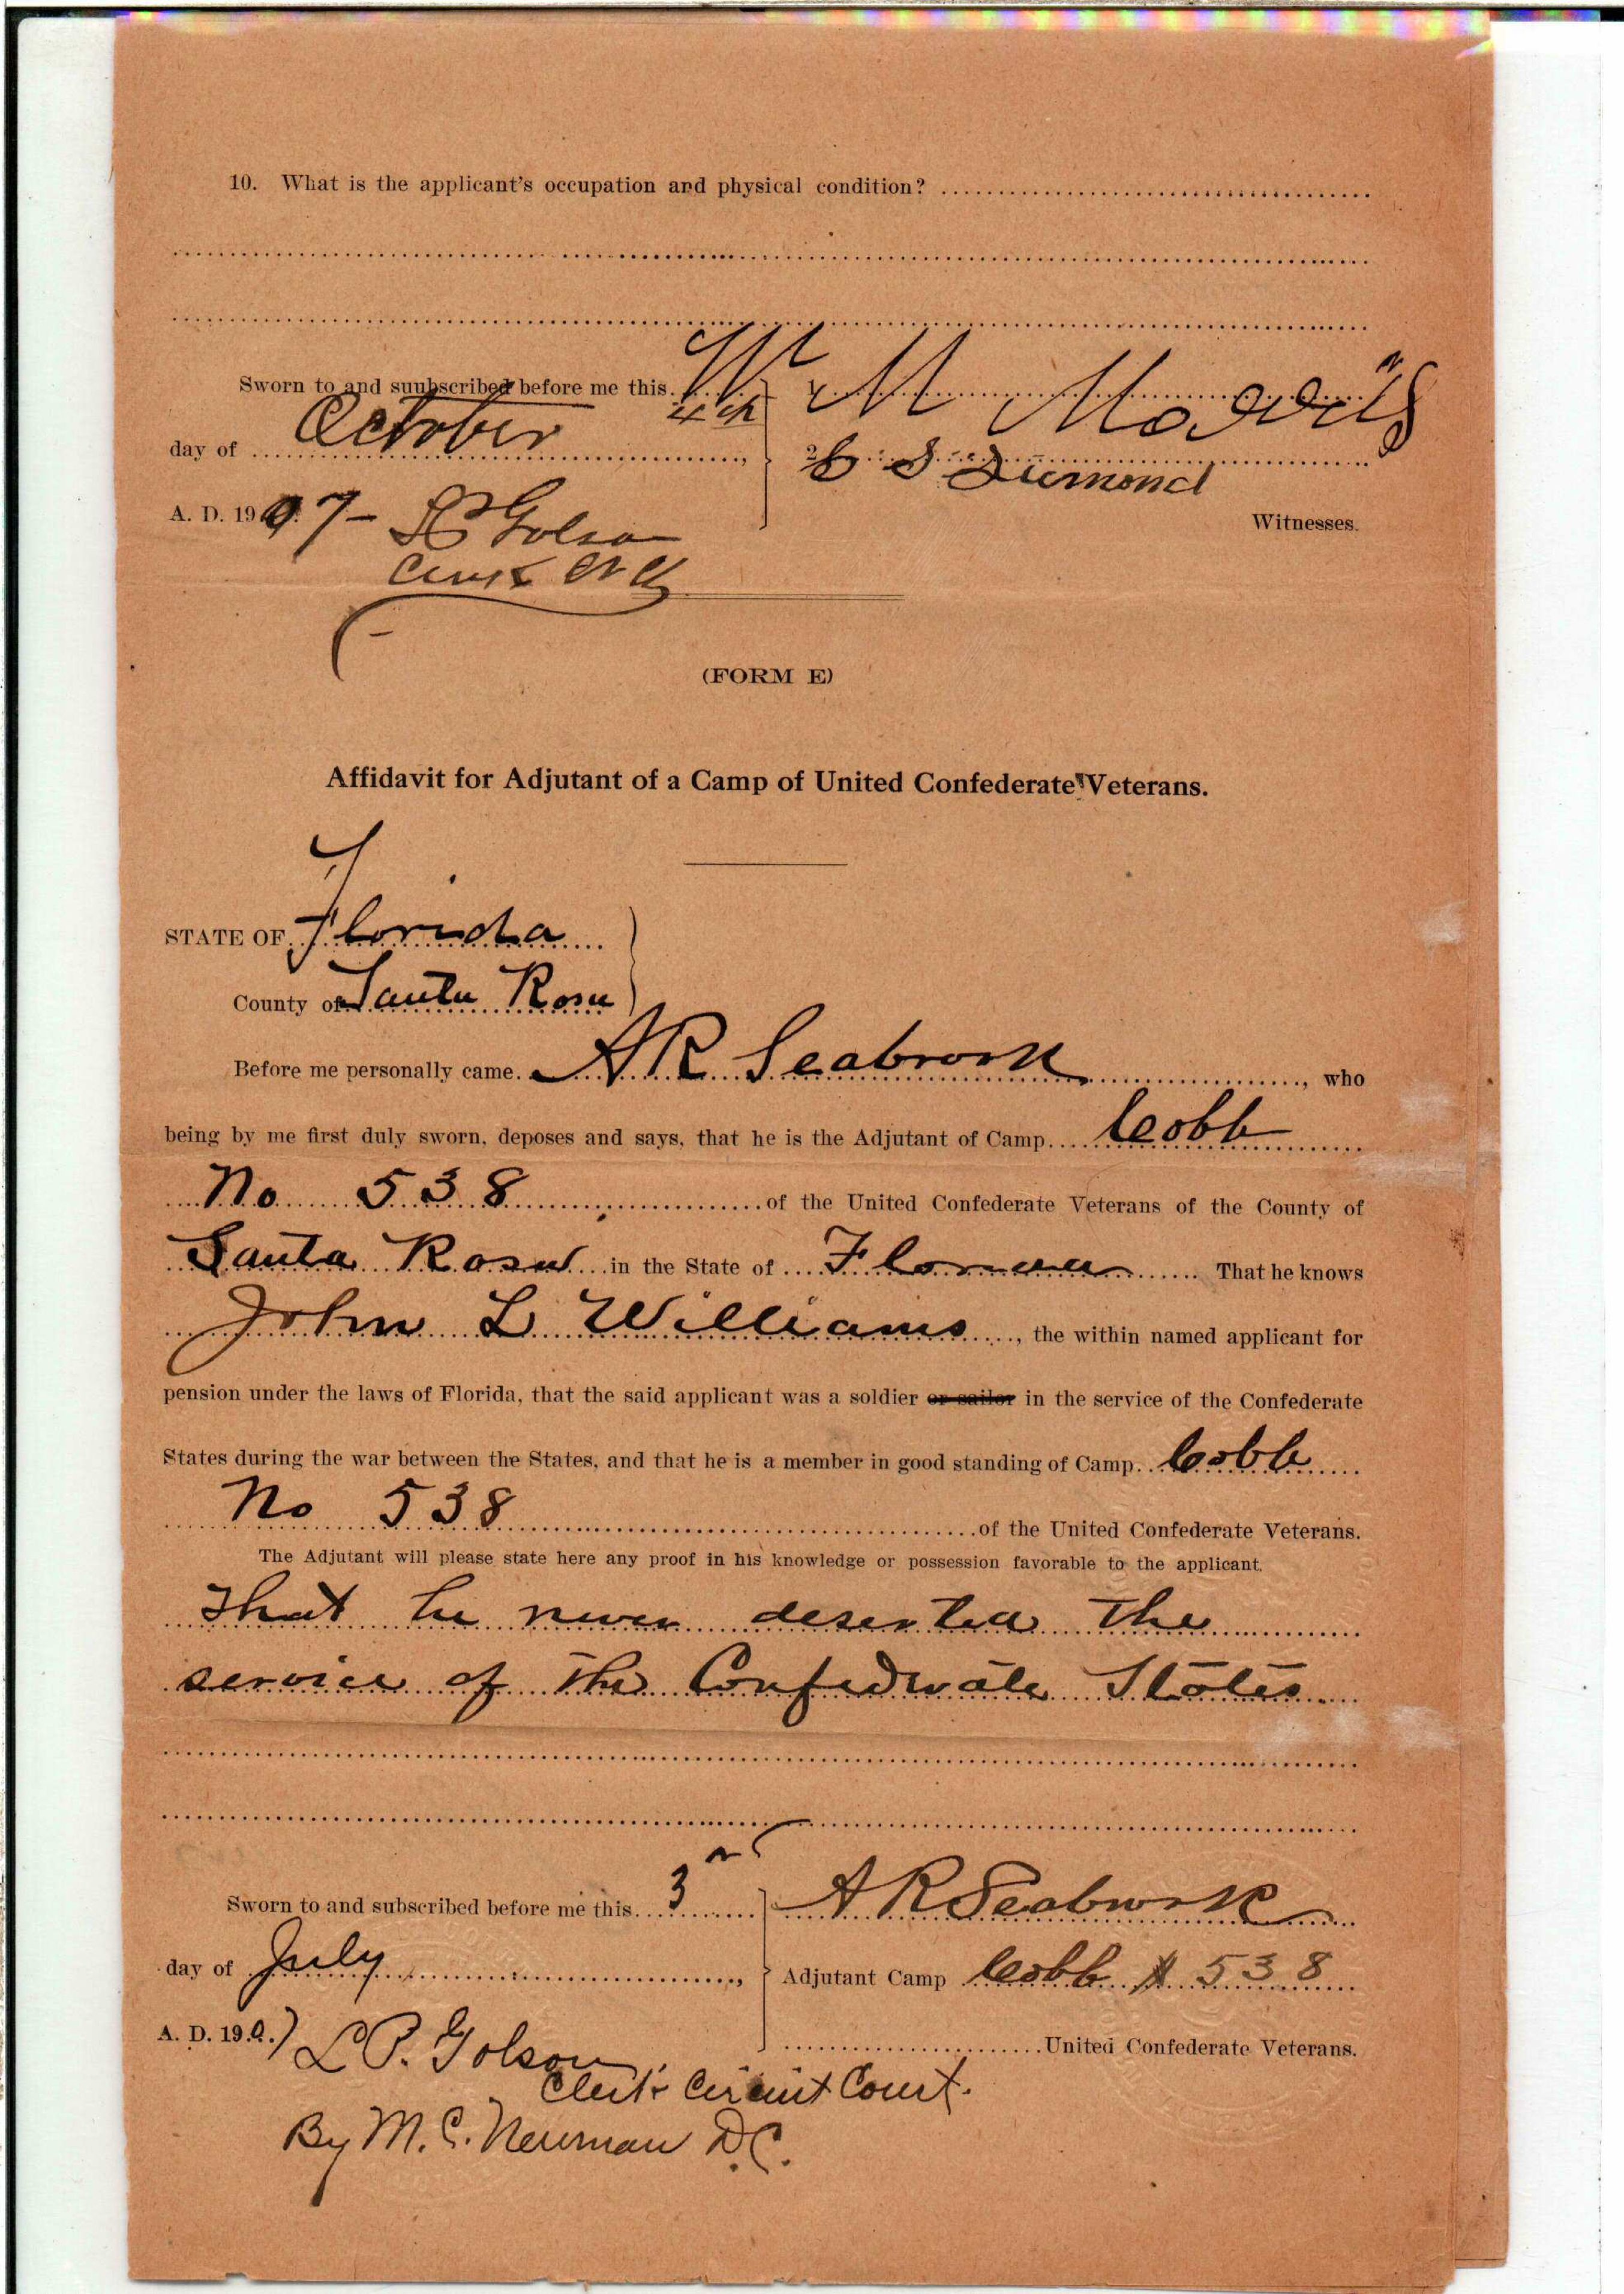 10. What is the applicant's occupation and physical condition?
Sworn to and suubscribed before me this 4th
day of October
A. D. 1907- L P Golson
Clerk
1 W M
2 C S Diamond
Witnesses.
(FORM E)
Affidavit for Adjutant of a Camp of United Confederate Veterans.
STATE OF Florida
County of Santa Rosa
Before me personally came A R Seabrook, who
being by me first duly sworn, deposes and says, that he is the Adjutant of Camp Cobb
No 538 of the United Confederate Veterans of the County of
Santa Rosa in the State of Florida That he knows
John L Williams, the within named applicant for
pension under the laws of Florida, that the said applicant was a soldier or sailor in the service of the Confederate
States during the war between the States, and that he is a member in good standing of Camp Cobb
No 538 of the United Confederate Veterans.
The Adjutant will please state here any proof in his knowledge or possession favorable to the applicant.
That he never deserted the
service of the Confederate States
Sworn to and subscribed before me this 3
day of July,
A. D. 1907
A R Seabrook
Adjutant Camp Cobb # 538
United Confederate Veterans.
L P. Golson
Clerk Circuit Court.
By M. C. Newman D.C.